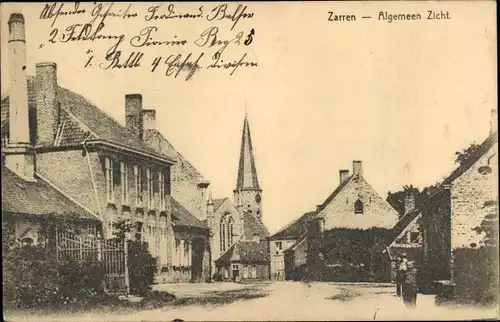 Absender Gefreiter Ferdinand Balser
2. Feldkomp Pionier Reg 25
1. Battl 4 Ersatz Division
Zarren — Algemeen Zicht.